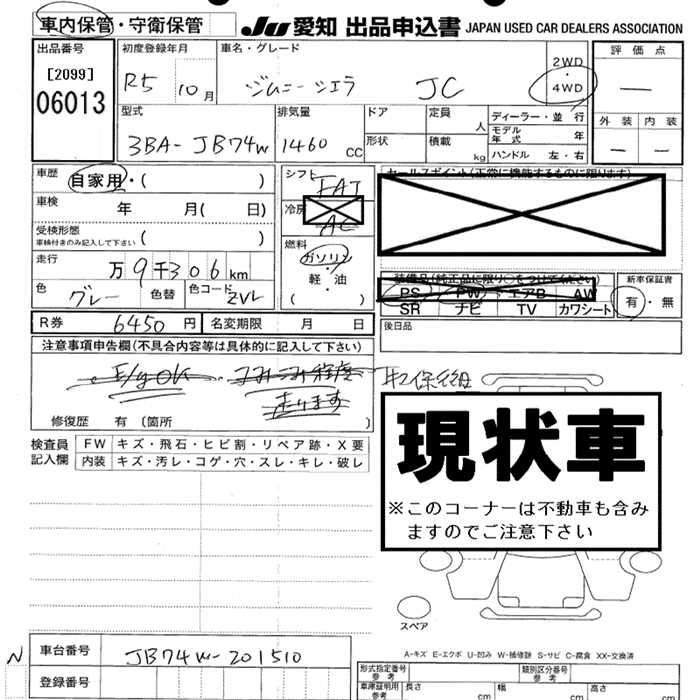 車内保管・守衛保管 JU 愛知 出品申込書 JAPAN USED CAR DEALERS ASSOCIATION
出品番号 初度登録年月 車名・グレード 評価点
[2099] R5 10月 ジムニーシエラ JC 2WD・4WD —
06013
型式 排気量 ドア 定員 人 ディーラー・並行 外装 内装
3BA-JB74W 1460 CC 形状 積載 kg モデル年式 年 — —
ハンドル 左・右
車歴 自家用・( ) シフト FAT セールスポイント(正常に機能するものに限ります)
車検 年 月( 日) 冷房 AC
受検形態 ( )
車検付きのみ記入して下さい
燃料 ガソリン・軽・油 ( )
走行 万9千306km 装備品(純正品に限り○をつけてください) 新車保証書
色 グレー 色替 色コード ZVL PS PW エアB AW 有・無
SR ナビ TV カワシート
R券 6450円 名変期限 月 日 後日品
注意事項申告欄(不具合内容等は具体的に記入して下さい)
E/gOK コミコミ程度
走ります
修復歴 有 (箇所 )
検査員記入欄 FW キズ・飛石・ヒビ割・リペア跡・X要
内装 キズ・汚レ・コゲ・穴・スレ・キレ・破レ
現状車
※このコーナーは不動車も含み
ますのでご注意下さい
スペア
A-キズ E-エクボ U-凹み W-補修跡 S-サビ C-腐食 XX-交換済
N 車台番号 JB74W-201510
登録番号
形式指定番号 類別区分番号
車庫証明用参考 長さ cm 幅 cm 高さ cm